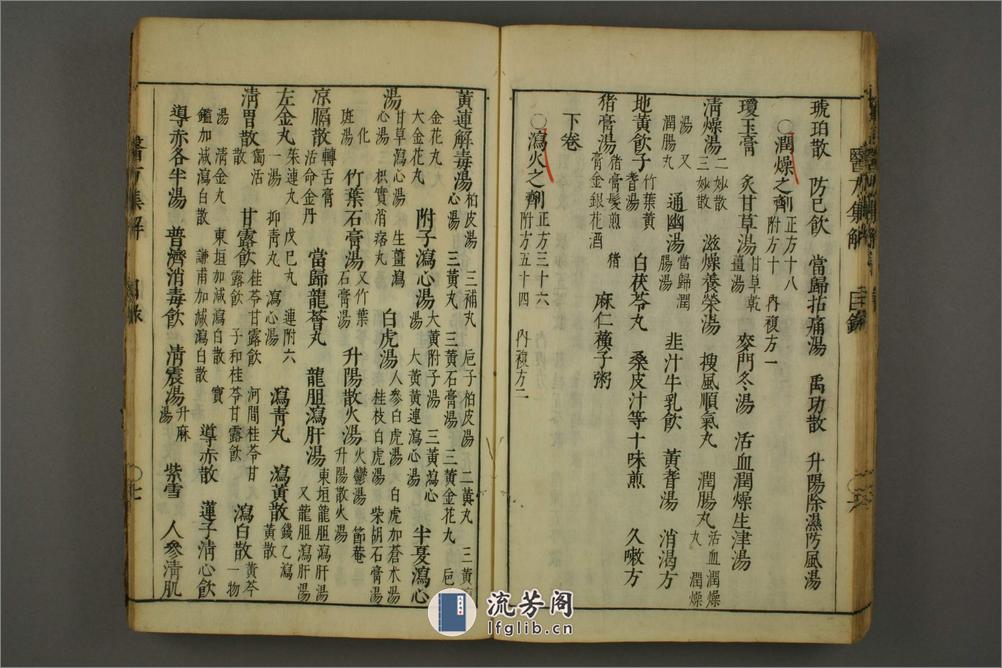 琥珀散 防己飲 當歸拈痛湯 禹功散 升陽除濕防風湯
○潤燥之劑 正方十八 附方十 內複方一
瓊玉膏 炙甘草湯 甘草乾薑湯 麥門冬湯 活血潤燥生津湯
清燥湯 二妙散 三妙散 滋燥養榮湯 搜風順氣丸 潤腸丸 活血潤燥丸 潤燥
湯 又潤腸丸 通幽湯 當歸潤腸湯 韭汁牛乳飲 黃耆湯 消渴方
地黃飲子 竹葉黃耆湯 白茯苓丸 桑皮汁等十味煎 久嗽方
猪膏湯 猪膏髮煎 猪膏金銀花酒 麻仁蘇子粥
下卷
○瀉火之劑 正方三十六 附方五十四 內複方二
黃連解毒湯 柏皮湯 三補丸 梔子柏皮湯 二黃丸 三黃
金花丸 心湯 三黃丸 三黃石膏湯 三黃金花丸 梔
大金花丸 附子瀉心湯 大黃附子湯 三黃瀉心湯 大黃黃連瀉心湯 半夏瀉心
湯 甘草瀉心湯 生薑瀉心湯 枳實消痞丸 白虎湯 人參白虎湯 白虎加蒼朮湯 桂枝白虎湯 柴胡石膏湯
化斑湯 竹葉石膏湯 又竹葉石膏湯 升陽散火湯 火鬱湯 節菴升陽散火湯
涼膈散 轉舌膏 活命金丹 當歸龍薈丸 龍胆瀉肝湯 東垣龍胆瀉肝湯 又龍胆瀉肝湯
左金丸 茱連丸 戊己丸 連附六一湯 抑青丸 瀉心湯 瀉青丸 瀉黃散 錢乙瀉黃散
清胃散 獨活散 甘露飲 桂苓甘露飲 子和桂苓甘露飲 河間桂苓甘露飲 瀉白散 黃芩一物
湯 清金丸 東垣加減瀉白散 寶鑑加減瀉白散 謙甫加減瀉白散 導赤散 蓮子清心飲
導赤各半湯 普濟消毒飲 清震湯 升麻湯 紫雪 人參清肌
醫方集解 目錄
醫方集解 目錄 ○七
流芳阁
lfglib.cn